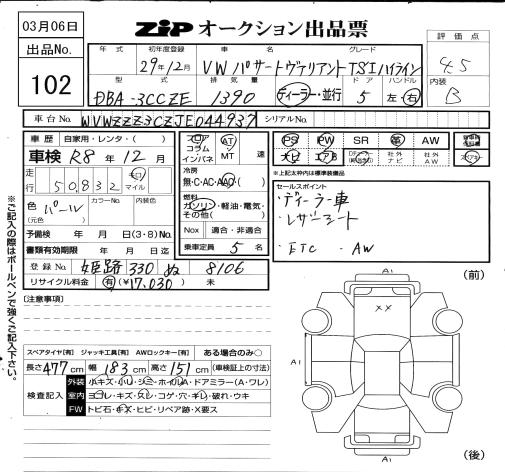 03月06日
ZIP オークション出品票
出品No.
102
評価点
4.5
内装
B
年式 初年度登録 車名 グレード
29年12月 VW パサートヴァリアント TSIハイライン
型式 排気量 ドア ハンドル
DBA-3CCZE 1390 ディーラー・並行 5 左・右
車台No. WVWZZZ3CZJE044937 シリアルNo.
車歴 自家用・レンタ・( )
車検 R8年12月
走行 50,832 キロ マイル
色 (元色) パール カラーNo. 内装色
予備検 年 月 日(3・8)No.
書類有効期限 年 月 日迄
登録No. 姫路 330 ぬ 8106
リサイクル料金 有(¥17,030) 未
フロア コラム インパネ AT MT 速
冷房
無・C・AC・AAC・( )
燃料
ガソリン・軽油・電気・その他( )
Nox 適合・非適合
乗車定員 5 名
PS PW SR 革 AW
ナビ エアB 社外ナビ 社外AW
※上記太枠内は標準装備品
セールスポイント
・ディーラー車
・レザーシート
・ETC ・AW
※ご記入の際はボールペンで強くご記入下さい。
[注意事項]
スペアタイヤ[有] ジャッキ工具[有] AWロックキー[有] ある場合のみ○
長さ 477cm 幅 183cm 高さ 151cm (車検証上の寸法)
検査記入
外装 小キズ・小凹・シミ・ホイルA・ドアミラー(A・ワレ)
室内 ヨゴレ・キズ・スレ・コゲ・穴・キレ・破れ・ウキ
FW トビ石・キズ・ヒビ・リペア跡・X要ス
(前)
A1
XX
A1
A1
A1
(後)